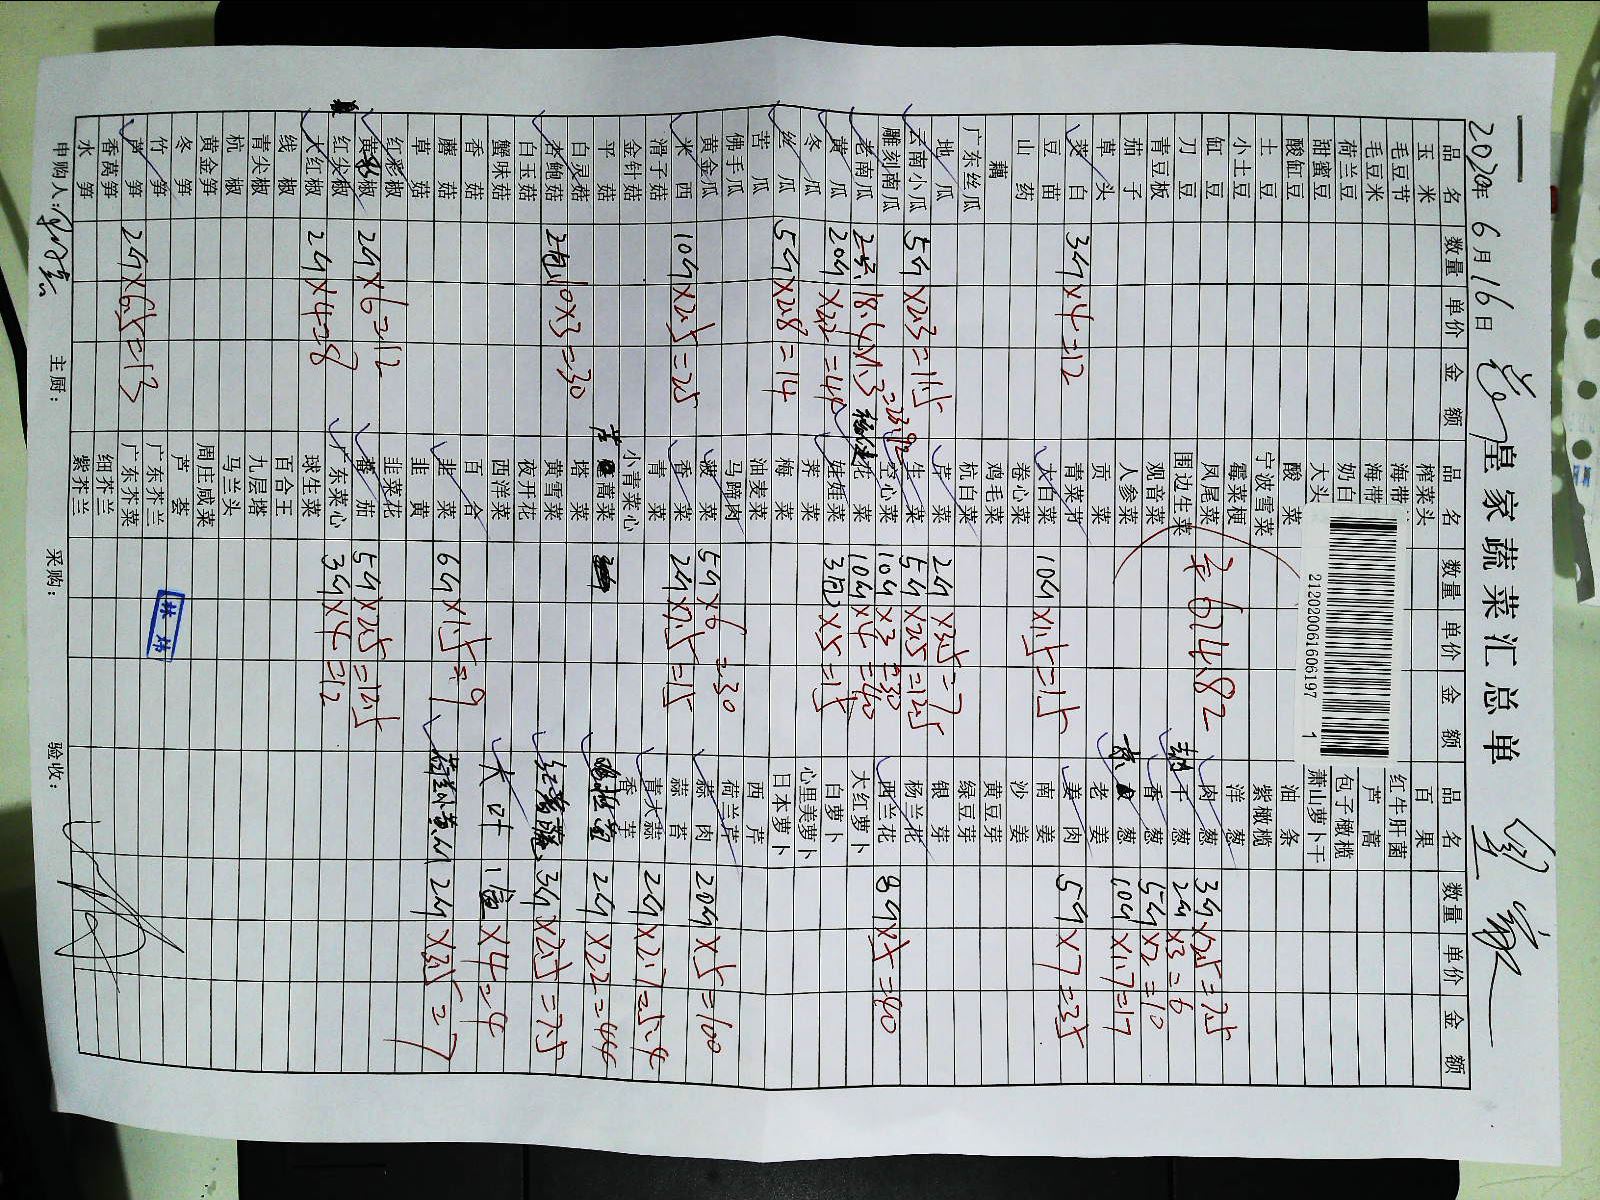 2020年6月16日
皇家蔬菜汇总单
212020061606197 1
品名 数量 单价 金额 品名 数量 单价 金额 品名 数量 单价 金额
玉米 榨菜头 百果
毛豆节 海带 红牛肝菌
毛豆米 海带 芦蒿
荷兰豆 奶白 包子橄榄
甜蜜豆 大头 萧山萝卜干
酸缸豆 酸菜 油条
土豆 宁波雪菜 紫橄榄
小土豆 霉菜梗 洋葱
缸豆 凤尾菜 肉葱 3斤×2.5=7.5
刀豆 围边生菜 干葱 2斤×3=6
青豆板 观音菜 香葱 5斤×2=10
茄子 人参菜 葱 10斤×1.7=17
草头 贡菜 老姜
茭白 3斤×4=12 青菜 姜肉 5斤×7=35
豆苗 大白菜 10斤×1.5=15 南姜
山药 卷心菜 沙姜
藕 鸡毛菜 黄豆芽
广东丝瓜 杭白菜 绿豆芽
地瓜 芹菜 2斤×3.5=7 银芽
云南小瓜 5斤×2.3=11.5 生菜 5斤×2.5=12.5 杨兰花
雕刻南瓜 空心菜 10斤×3=30 西兰花 8斤×5=40
老南瓜 18.4×1.3=23.92 花 10斤×4=40 大红萝卜
黄瓜 20斤×2.2=44 娃娃菜 3包×5=15 白萝卜
冬瓜 荠菜 心里美萝卜
丝瓜 5斤×2.8=14 梅菜 日本萝卜
苦瓜 油麦菜 西芹
佛手瓜 马蹄肉 荷兰芹
黄金瓜 菠菜 5斤×6=30 蒜肉 20斤×5=100
米西 10斤×2.5=25 香菜 2斤×7.5=15 蒜苔
滑子菇 青菜 青大蒜 2斤×2.7=5.4
金针菇 小青菜心 香芋
平菇 苦蒿菜 2斤×22=44
白灵菇 塔菜
本鲍菇 2包10×3=30 黄雪菜 3斤×2.5=7.5
白玉菇 夜开花
蟹味菇 西洋菜 大叶 1盒×4=4
香菇 百合
蘑菇 韭菜 6斤×1.5=9 2斤×3.5=7
草菇 韭黄
红彩椒 韭菜花
黄彩椒 2斤×6=12 番茄 5斤×2.5=12.5
红尖椒 广东菜心 3斤×4=12
大红椒 2斤×4=8 球生菜
线椒 百合王
青尖椒 九层塔
杭椒 马兰头
黄金笋 周庄咸菜
冬笋 芦荟
竹笋 广东芥兰
芦笋 2斤×6.5=13 广东芥菜
香莴笋 细芥兰
水笋 紫芥兰
674.82
申购人： 主厨： 采购： 验收：